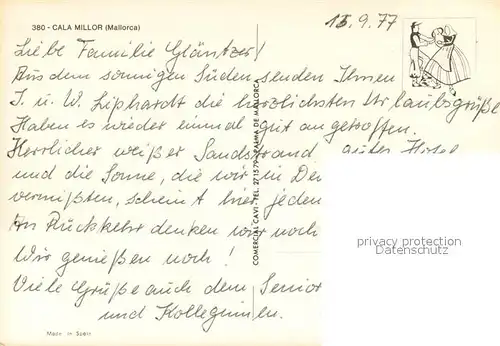 380 - CALA MILLOR (Mallorca)
15.9.77
Liebe Familie Gläntzer!
Aus dem sonnigen Süden senden Ihnen
I. u. W. Liphardt die herzlichsten Urlaubsgrüße
Haben es wieder einmal gut angetroffen.
Herrlicher weißer Sandstrand gutes Hotel
und die Sonne, die wir in De
vermißten, scheint hier jeden
An Rückkehr denken wir noch
Wir genießen noch!
Viele Grüße auch dem Senior
und Kolleginnen.
COMERCIAL CAVI - TEL. 271579 - PALMA DE MALLORCA
Made in Spain
privacy protection
Datenschutz